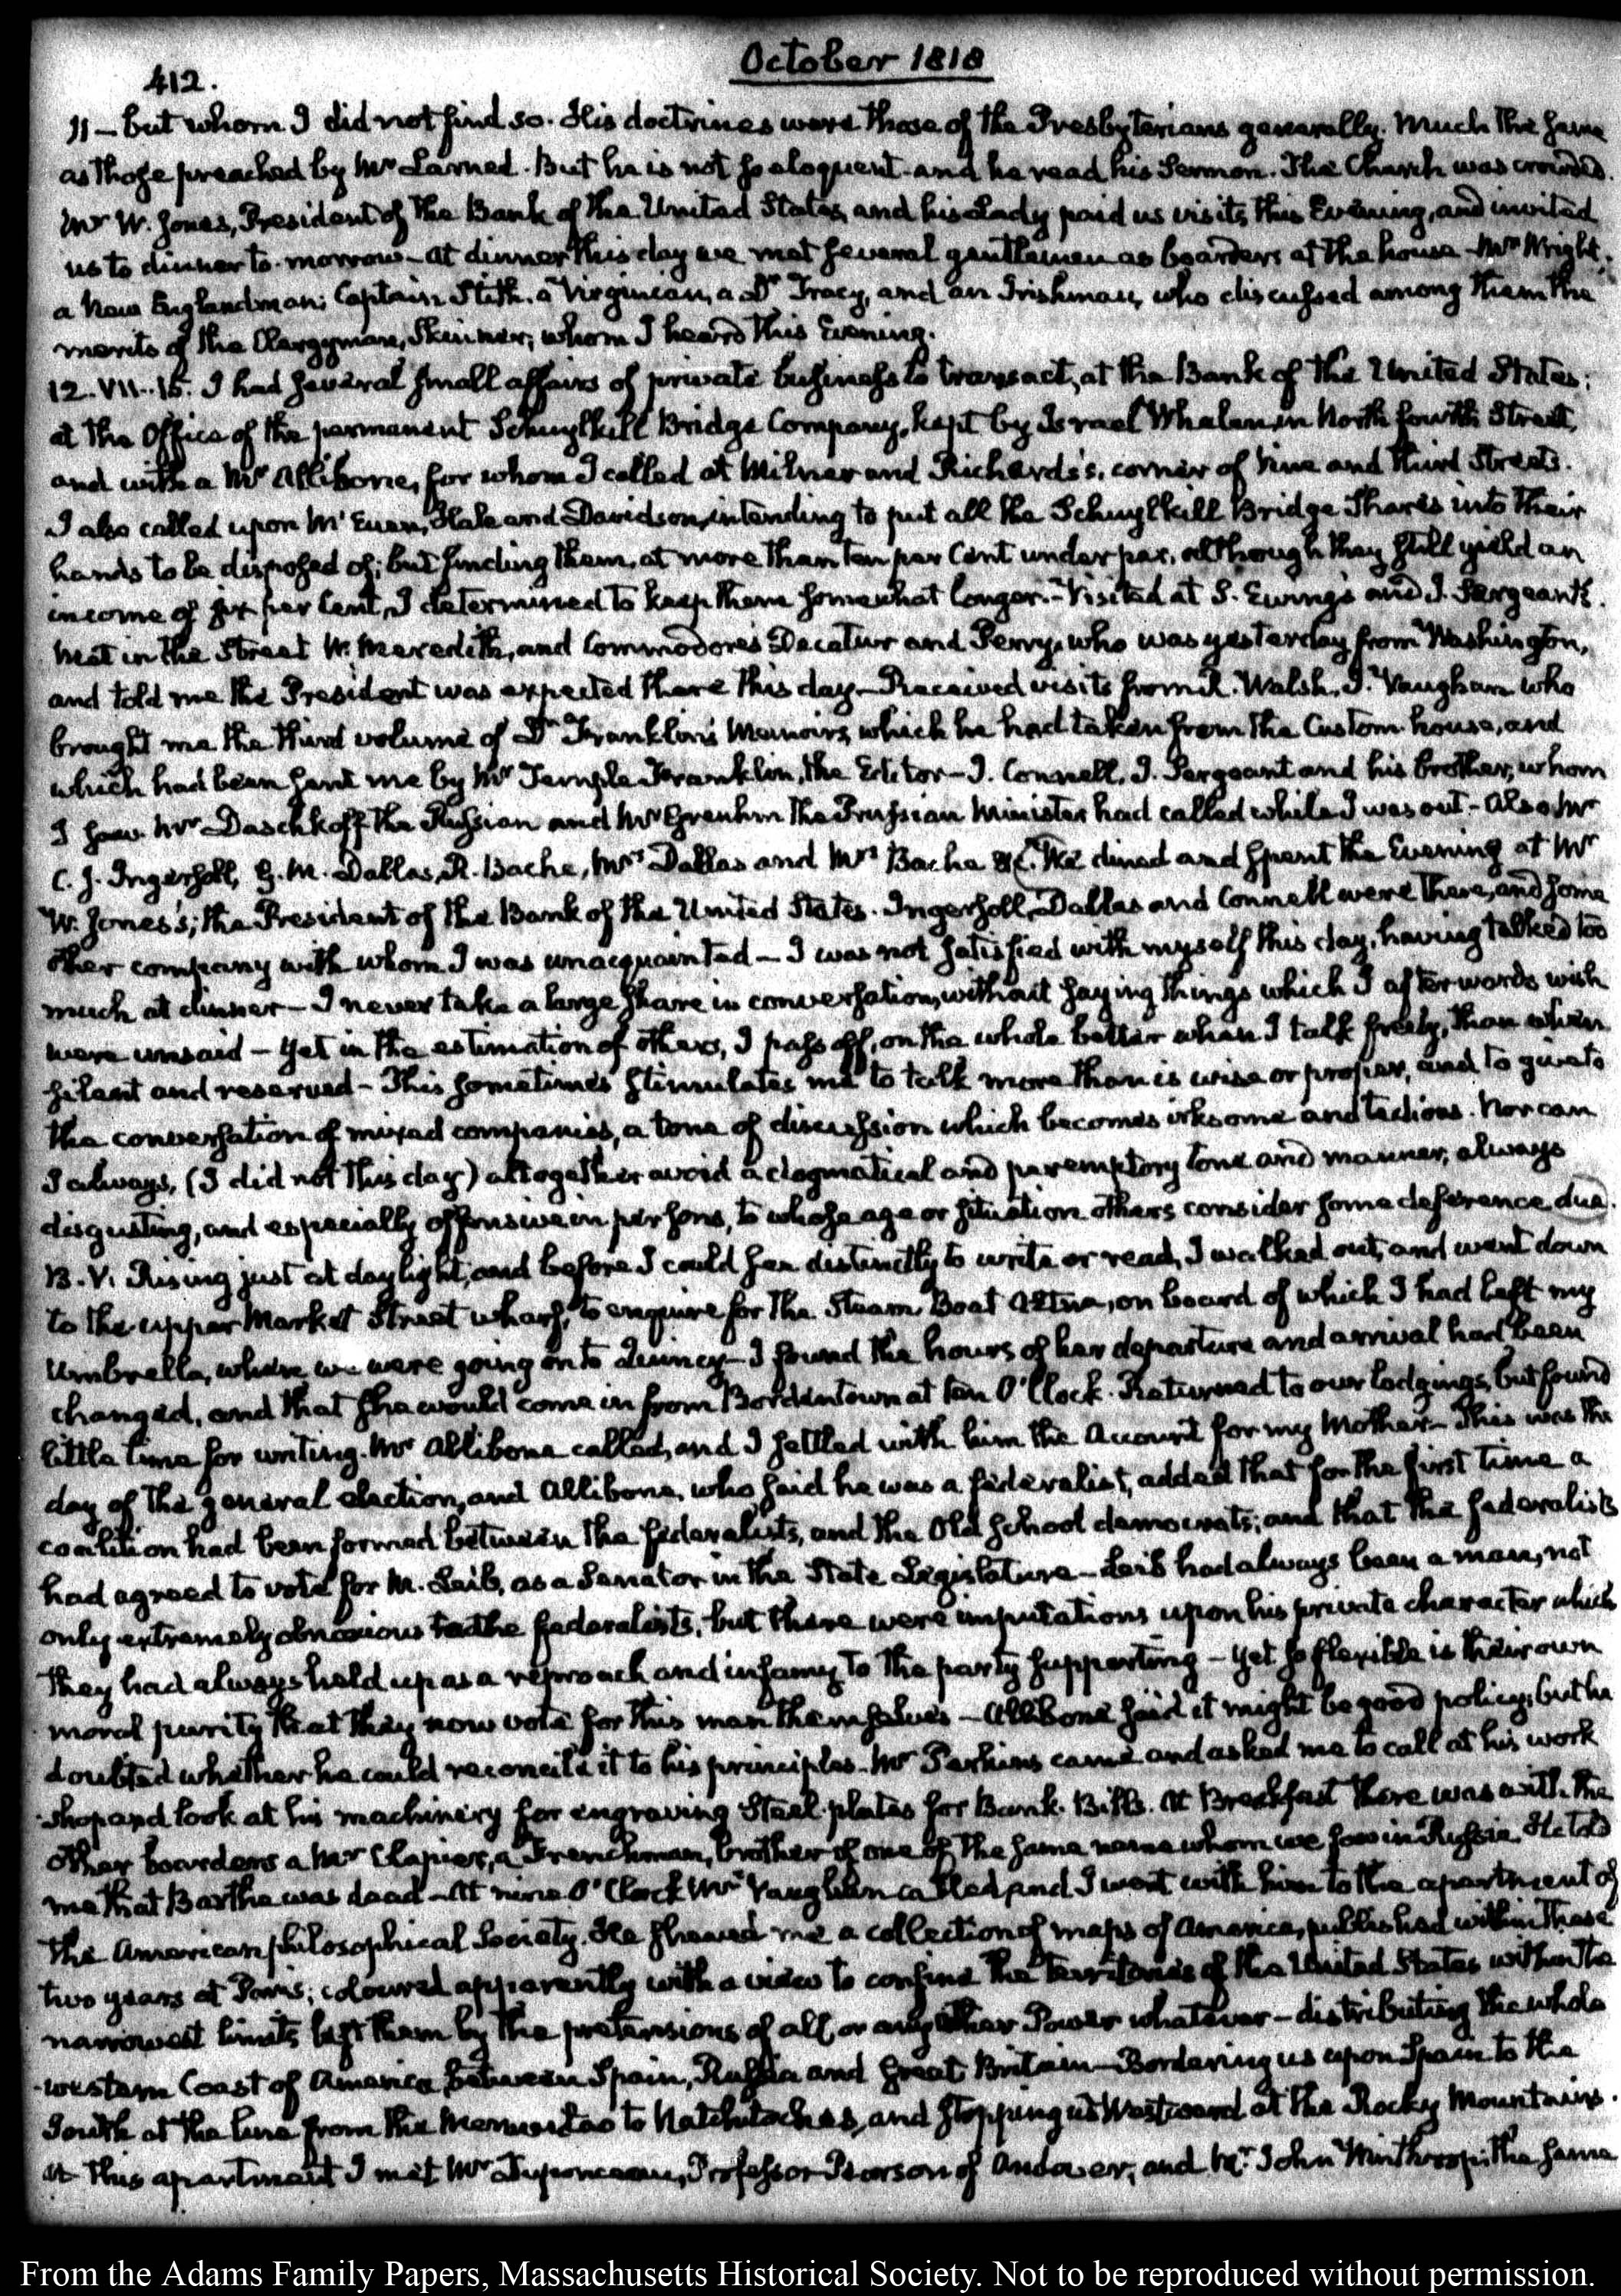 412.
October 1818
11 — but whom I did not find so. His doctrines were those of the Presbyterians generally. Much the same
as those preached by Mr Larned. But he is not so eloquent and he read his Sermon. The Church was crowded.
Mr W. Jones, President of the Bank of the United States, and his Lady paid us visits this Evening, and invited
us to dinner to-morrow — at dinner this day we met several gentlemen as boarders at the house — Mr Wright,
a New Englandman; Captain Stith, a Virginian, a Dr Tracy, and an Irishman, who discussed among them the
merits of the Clergyman, Skinner, whom I heard this Evening.
12. VII..15. I had several small affairs of private business to transact, at the Bank of the United States;
at the Office of the permanent Schuylkill Bridge Company, kept by Israel Whalen, in North fourth Street,
and with a Mr Allibone, for whom I called at Milnor and Richards's, corner of Vine and third Streets.
I also called upon McEuen, Hale and Davidson, intending to put all the Schuylkill Bridge Shares into their
hands to be disposed of; but finding them at more than ten per Cent under par, although they still yield an
income of six per Cent, I determined to keep them somewhat longer. — Visited at S. Ewing's and J. Sergeant's.
Met in the Street W. Meredith, and Commodores Decatur and Perry, who was yesterday from Washington,
and told me the President was expected there this day — Received visits from R. Walsh, J. Vaughan who
brought me the third volume of Dr Franklin's Memoirs, which he had taken from the Custom house, and
which had been sent me by Mr Temple Franklin, the Editor — J. Connell, J. Sergeant and his brother, whom
I saw. Mr Daschkoff the Russian and Mr Greuhm the Prussian Minister had called while I was out — Also Mr
C. J. Ingersoll, G. M. Dallas, R. Bache, Mrs Dallas and Mrs Bache &c. We dined and spent the Evening at Mr
W. Jones's; the President of the Bank of the United States. Ingersoll, Dallas and Connell were there, and some
other company with whom I was unacquainted — I was not satisfied with myself this day, having talked too
much at dinner — I never take a large share in conversation, without saying things which I afterwards wish
were unsaid — Yet in the estimation of others, I pass off, on the whole better when I talk freely, than when
silent and reserved — This sometimes stimulates me to talk more than is wise or proper, and to give to
the conversation of mixed companies, a tone of discussion which becomes irksome and tedious. Nor can
I always, (I did not this day) altogether avoid a dogmatical and peremptory tone and manner, always
disgusting, and especially offensive in persons, to whose age or situation others consider some deference due.
13. VI. Rising just at daylight, and before I could see distinctly to write or read, I walked out, and went down
to the upper Market Street wharf, to enquire for the Steam Boat Ætna, on board of which I had left my
Umbrella, when we were going on to Quincy — I found the hours of her departure and arrival had been
changed, and that she would come in from Bordentown at ten O'Clock. Returned to our lodgings, but found
little time for writing. Mr Allibone called, and I settled with him the Account for my Mother — This was the
day of the general election, and Allibone, who said he was a federalist, added that for the first time a
coalition had been formed between the federalists, and the Old School democrats; and that the federalists
had agreed to vote for M. Leib, as a Senator in the State Legislature — Leib had always been a man, not
only extremely obnoxious to the federalists, but there were imputations upon his private character which
they had always held up as a reproach and infamy to the party supporting — Yet so flexible is their own
moral purity that they now vote for this man themselves — Allibone said it might be good policy, but he
doubted whether he could reconcile it to his principles. Mr Perkins came and asked me to call at his work
shop and look at his machinery for engraving Steel plates for Bank-Bills. At Breakfast there was with the
other boarders a Mr Clapier, a Frenchman, brother of one of the same name whom we saw in Russia. He told
me that Barthe was dead — At nine O'Clock Mr Vaughan called and I went with him to the apartment of
the American philosophical Society. He shewed me a collection of maps of America, published within these
two years at Paris; coloured apparently with a view to confine the territories of the United States within the
narrowest limits left them by the pretensions of all or any other Power whatever — distributing the whole
western Coast of America between Spain, Russia and Great Britain — Bordering us upon Spain to the
South at the line from the Mermentao to Natchitoches, and stopping us Westward at the Rocky Mountains.
At this apartment I met Mr Duponceau, Professor Pearson of Andover, and Mr John Winthrop; the same
From the Adams Family Papers, Massachusetts Historical Society. Not to be reproduced without permission.